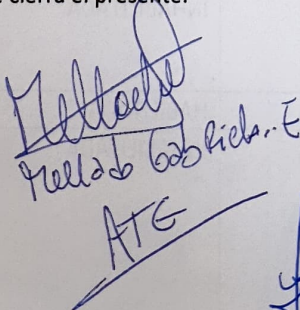 cierra el presente.
Mellado
Mellado Gabriela.. E
ATE